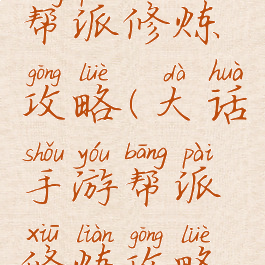 帮派修炼
gōng lüè dà huà
攻略(大话
shǒu yóu bāng pài
手游帮派
xiū liàn gōng lüè
修炼攻略